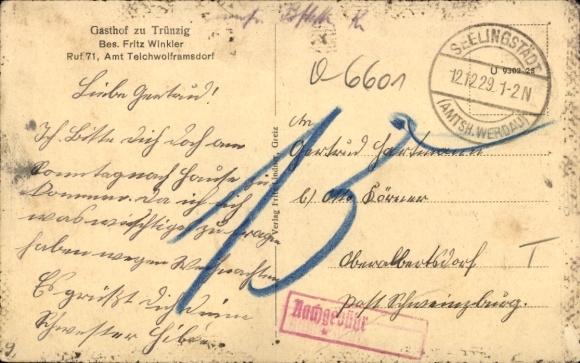 Gasthof zu Trünzig
Bes. Fritz Winkler
Ruf 71, Amt Teichwolframsdorf
Liebe Gertrud!
Ich bitte dich doch am
Sonntag nach Hause zu
kommen. Da ich dich
was wichtiges zu fragen
haben wegen Weihnachten
Es grüßt dich dein
Schwester
Verlag Fritz Lindner, Greiz
σ-6601
SEELINGSTÄDT
12.12.29.1-2N
(AMTSH. WERDAU)
U 9302 28
An
Gertrud Hartmann
b/ Otto Körner
Oberalbertsdorf
Post Schweinsburg.
T
15
Nachgebühr
9